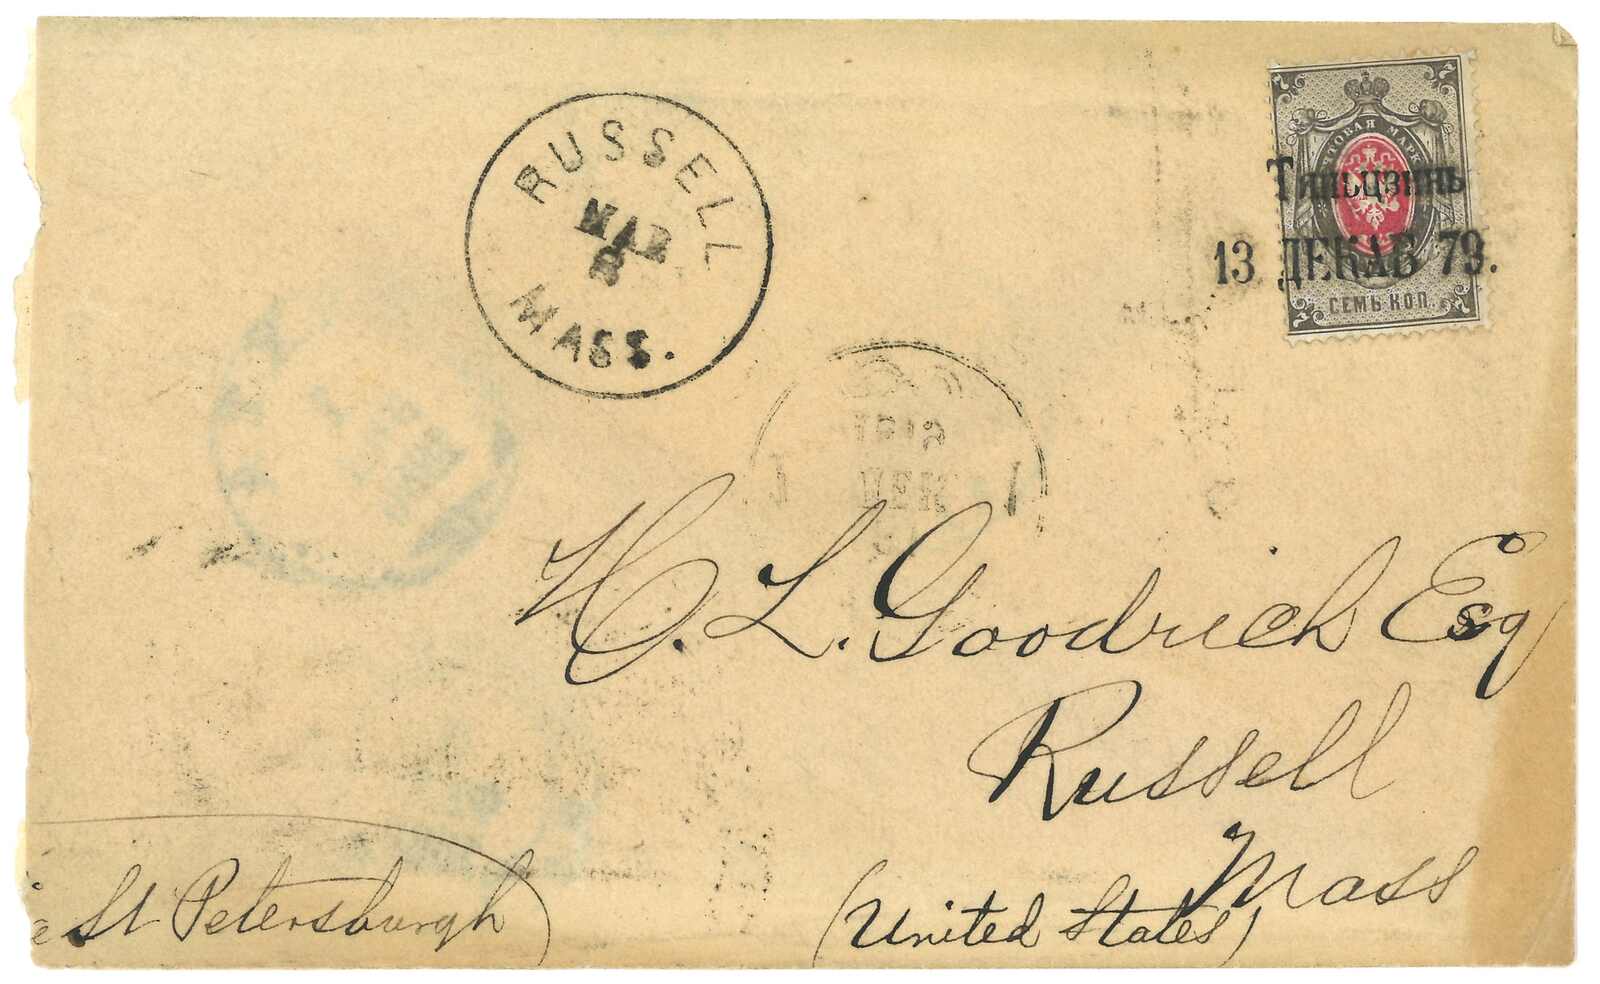 RUSSELL
MAR
8
MASS.
ПОЧТОВАЯ МАРКА
Тяньцзинь
13 ДЕКАБ 79.
СЕМЬ КОП.
1879
ДЕК
H. L. Goodrich Esq
Russell
Mass
(United States)
St Petersburgh)